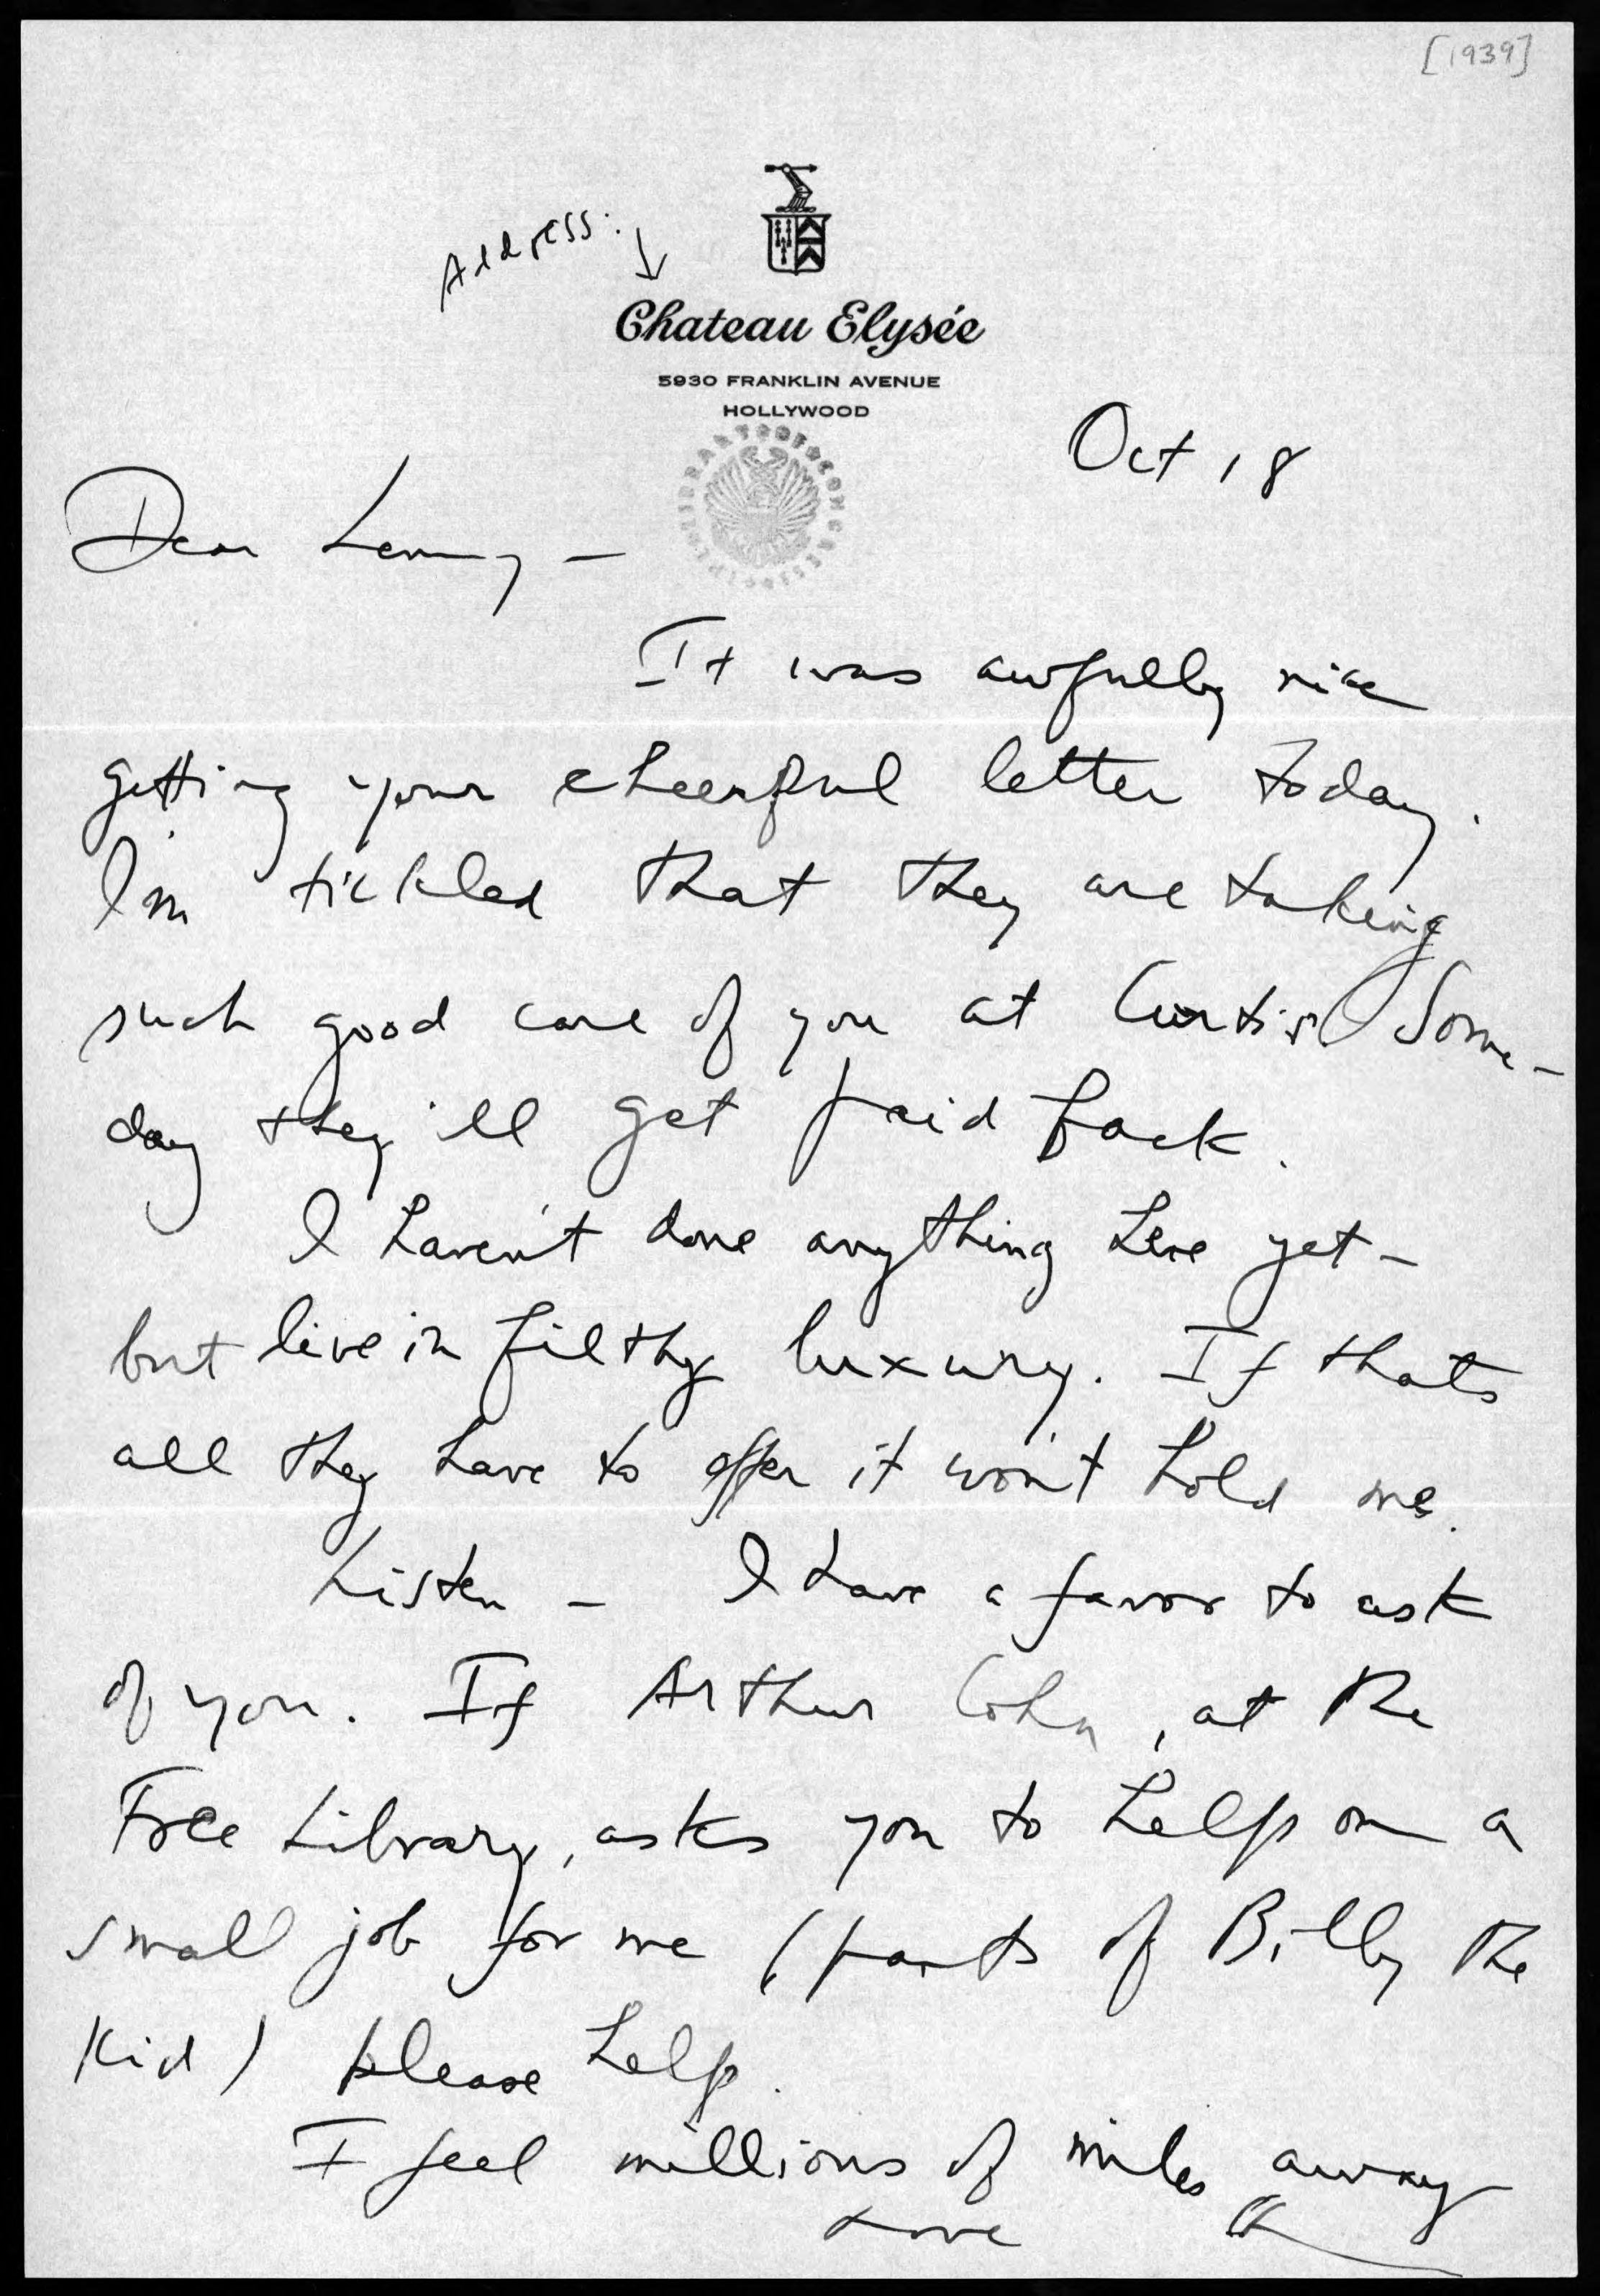 [1939]
Address:
Chateau Elysée
5930 FRANKLIN AVENUE
HOLLYWOOD
Oct 18
Dear Lenny —
It was awfully nice
getting your cheerful letter today.
I'm tickled that they are taking
such good care of you at Curtis. Some-
day they'll get paid back.
I haven't done anything here yet —
but live in filthy luxury. If thats
all they have to offer it won't hold me.
Listen — I have a favor to ask
of you. If Arthur Cohn, at the
Free Library, asks you to help on a
small job for me (parts of Billy the
Kid) please help.
I feel millions of miles away
Love